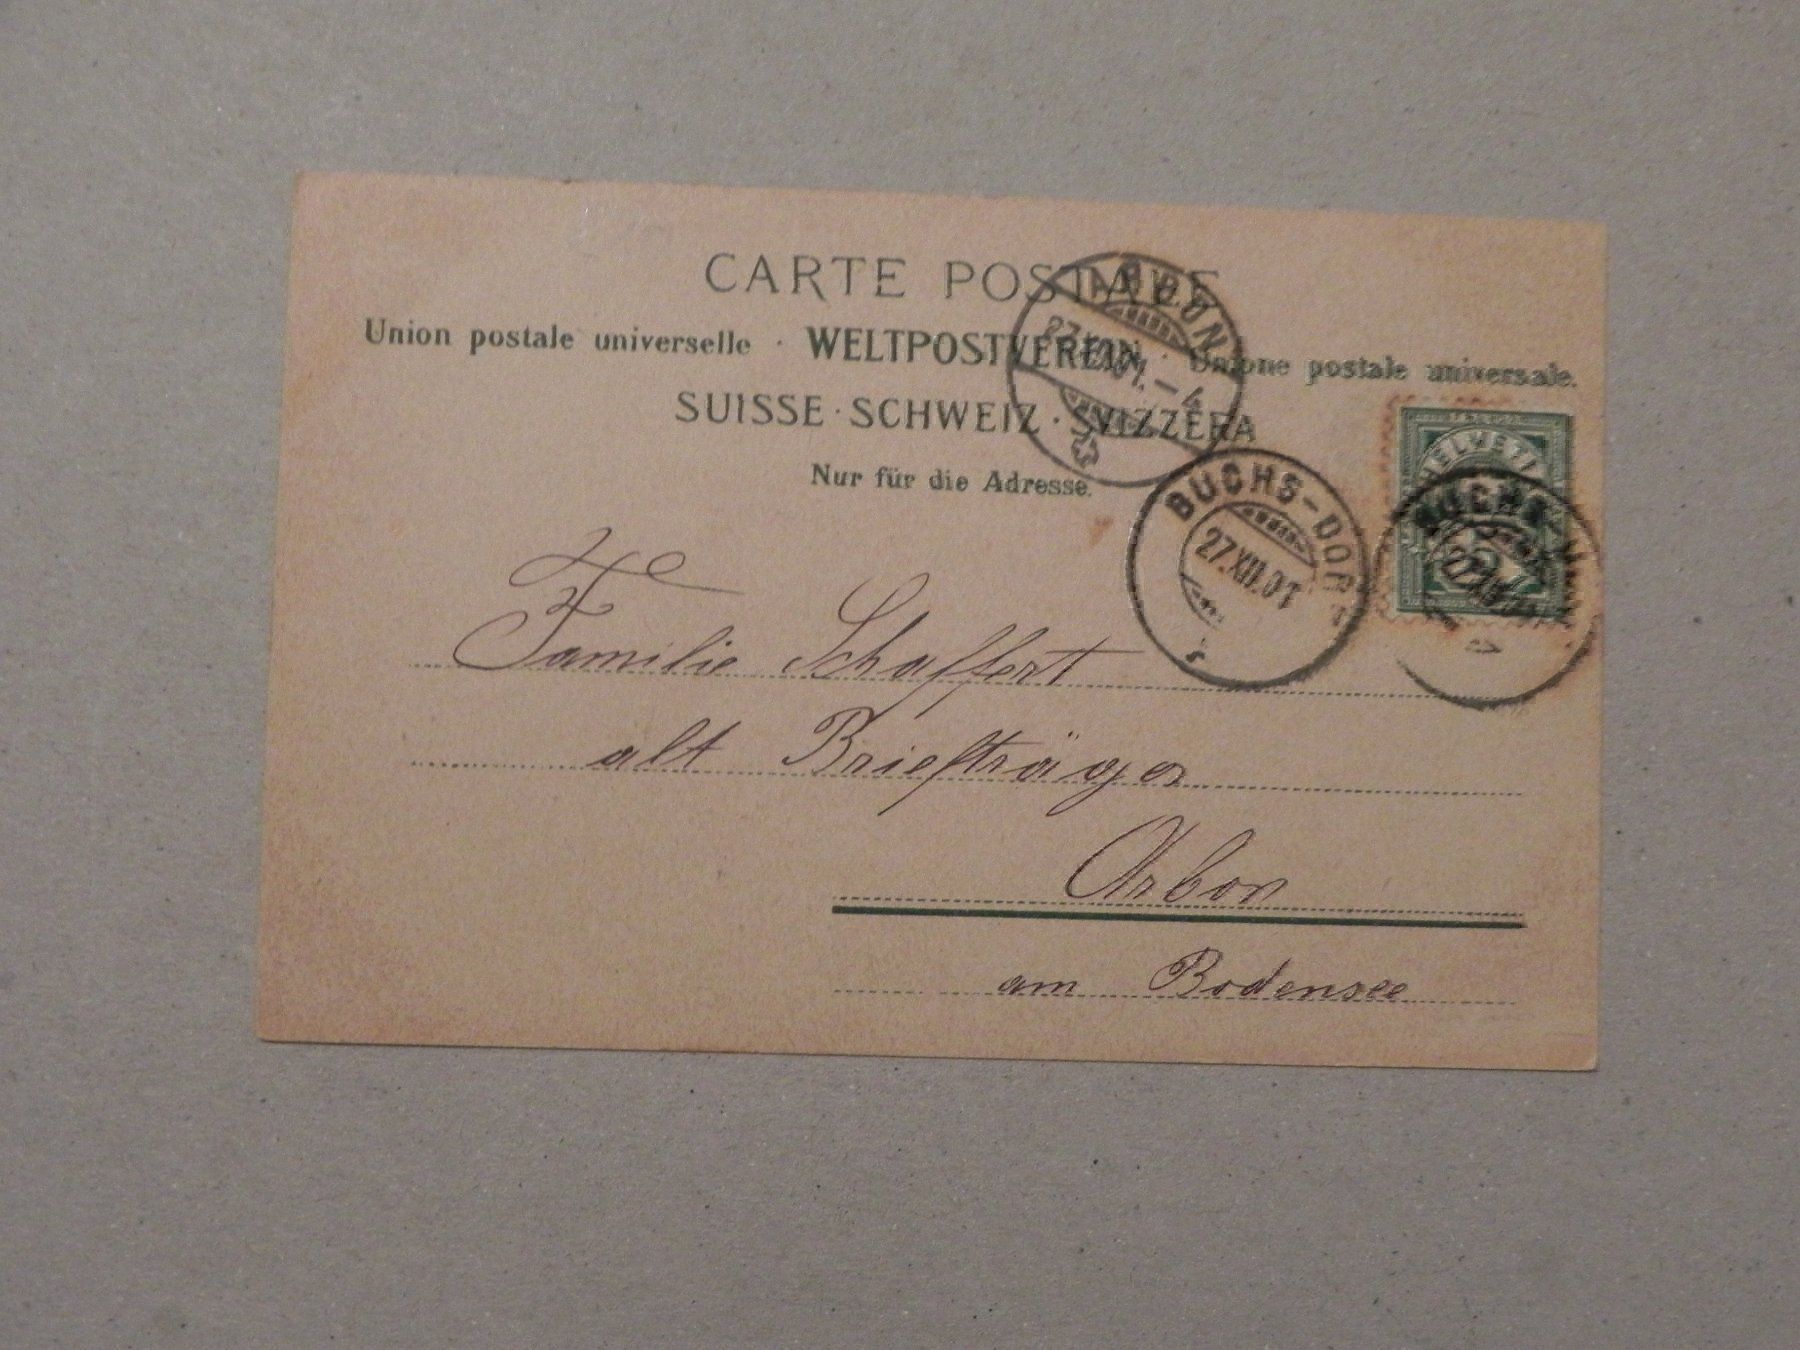 CARTE POSTALE
Union postale universelle · WELTPOSTVEREIN · Unione postale universale.
SUISSE · SCHWEIZ · SVIZZERA
Nur für die Adresse.
ARBON
27.XII.01.–4
HELVETIA
BUCHS-DORF
27.XII.01
BUCHS-
Familie Schaffert
alt Briefträger
Arbon
am Bodensee